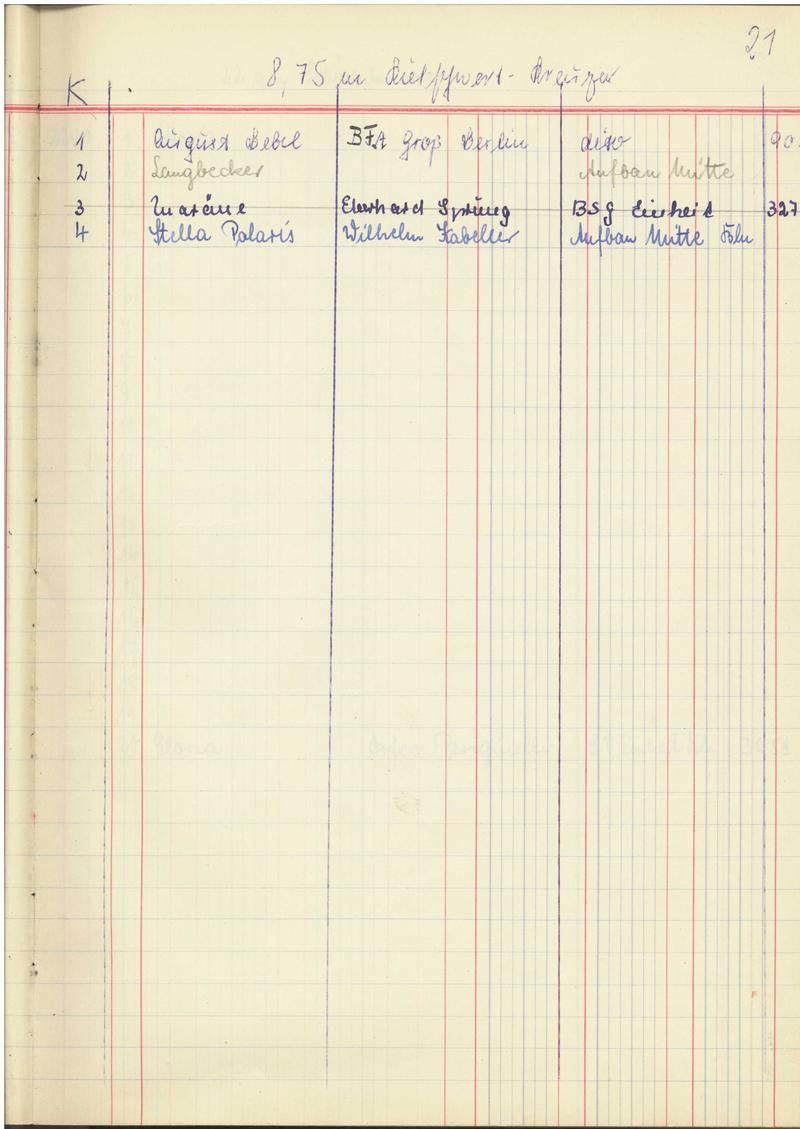 21
8,75 m Kielschwert-Kreuzer
K
1 August Bebel BFA Groß Berlin dito 90
2 Langbecker Aufbau Mitte
3 Maräne Eberhard Sprung BSG Einheit 327
4 Stella Polaris Wilhelm Aufbau Mitte Bln